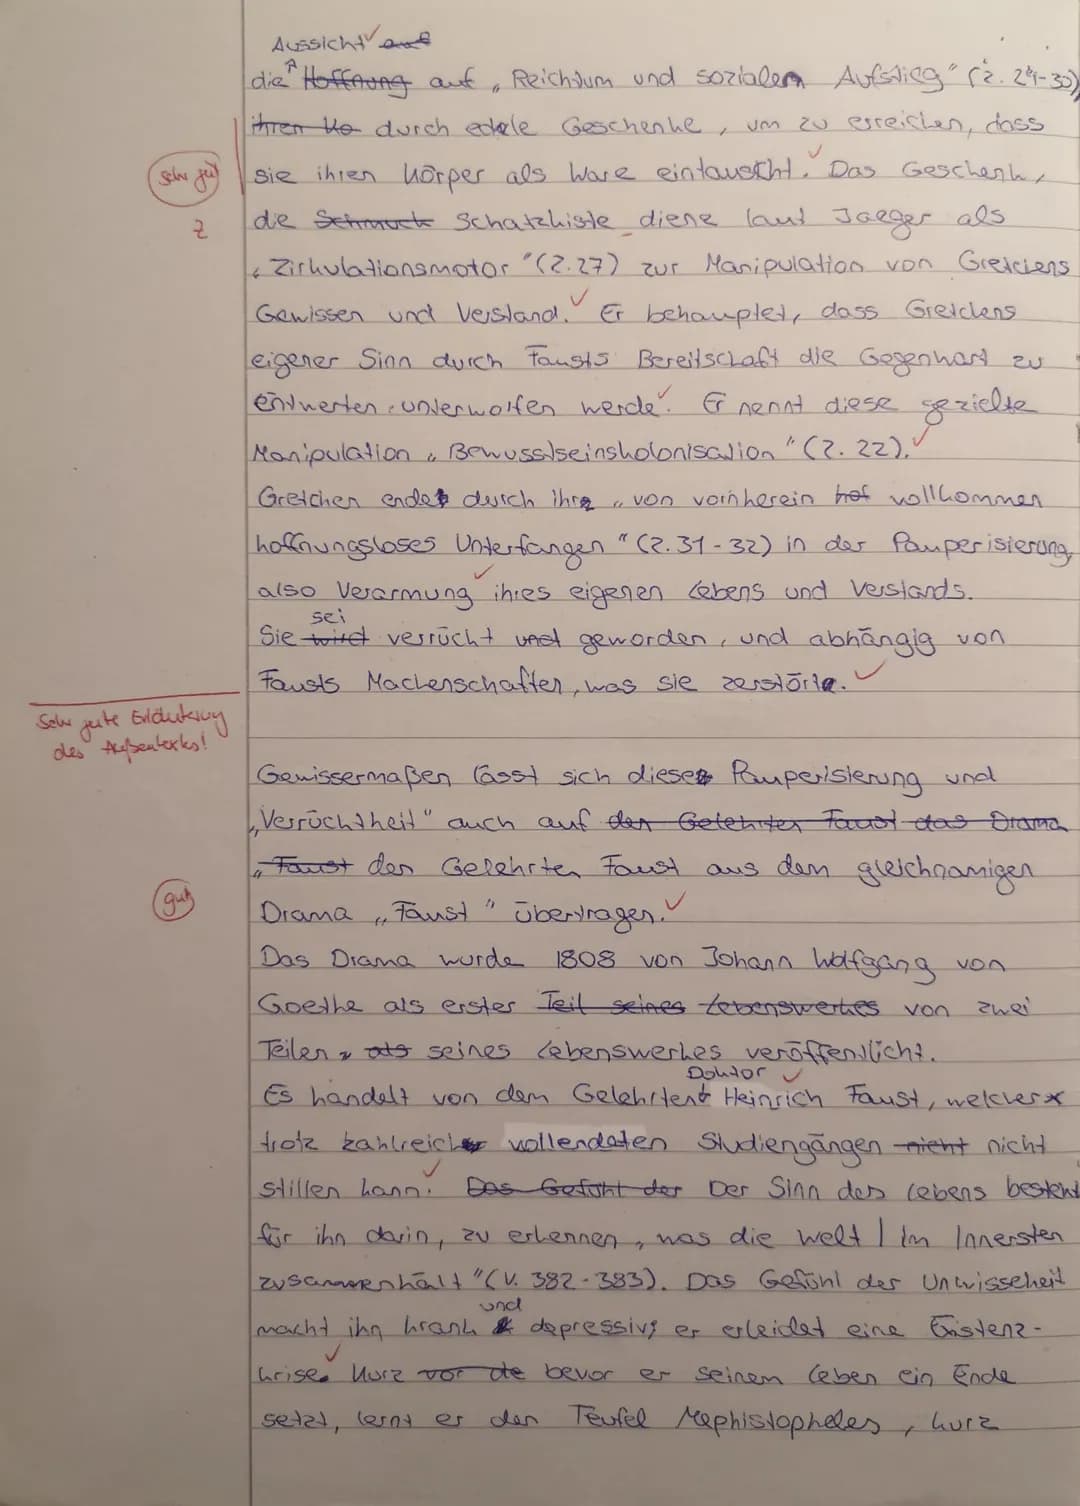 Aussicht auf
die Hoffnung auf „Reichtum und sozialen Aufstieg" (Z. 29-30)
ihren Ko durch edele Geschenke, um zu erreichen, dass
sehr gut
sie ihren Körper als Ware eintauscht. Das Geschenk,
Z
die Schmuck Schatzkiste diene laut Jaeger als
„Zirkulationsmotor" (Z.27) zur Manipulation von Gretchens
Gewissen und Verstand. Er behauptet, dass Gretchens
eigener Sinn durch Fausts Bereitschaft die Gegenwart zu
entwerten unterworfen werde. Er nennt diese gezielte
Manipulation „Bewusstseinskolonisation" (Z. 22).
Gretchen endet durch ihre „von vornherein hof vollkommen
hoffnungsloses Unterfangen" (Z.31-32) in der Pauperisierung,
also Verarmung ihres eigenen Lebens und Verstands.
sei
Sie wird verrückt und geworden, und abhängig von
Fausts Machenschaften, was sie zerstörte.
Sehr gute Erläuterung
des Außentextes!
Gewissermaßen lässt sich diese Pauperisierung und
„Verrücktheit" auch auf den Gelehrten Faust das Drama
„Faust den Gelehrten Faust aus dem gleichnamigen
gut
Drama „Faust" übertragen.
Das Drama wurde 1808 von Johann Wolfgang von
Goethe als erster Teil seines Lebenswerkes von zwei
Teilen als seines Lebenswerkes veröffentlicht.
Doktor
Es handelt von dem Gelehrten Heinrich Faust, welcher
trotz zahlreicher vollendeten Studiengängen nicht nicht
stillen kann. Das Gefühl der Der Sinn des Lebens besteht
für ihn darin, zu erkennen, was die Welt / Im Innersten
zusammenhält" (V. 382-383). Das Gefühl der Unwissheit
und
macht ihn krank depressiv, er erleidet eine Existenz-
krise. Kurz vor de bevor er seinem Leben ein Ende
setzt, lernt er den Teufel Mephistopheles, kurz